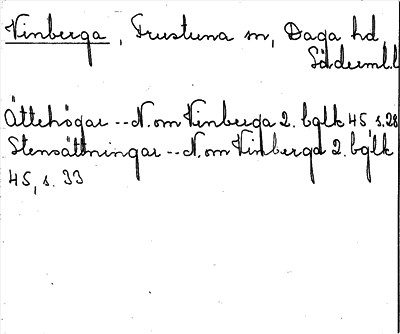 Vinberga, Frustuna sn, Daga hd
Söderml.l
Ättehögar -- N. om Vinberga 2. bglk 45, s. 28
Stensättningar -- N. om Vinberga 2. bglk
45, s. 33